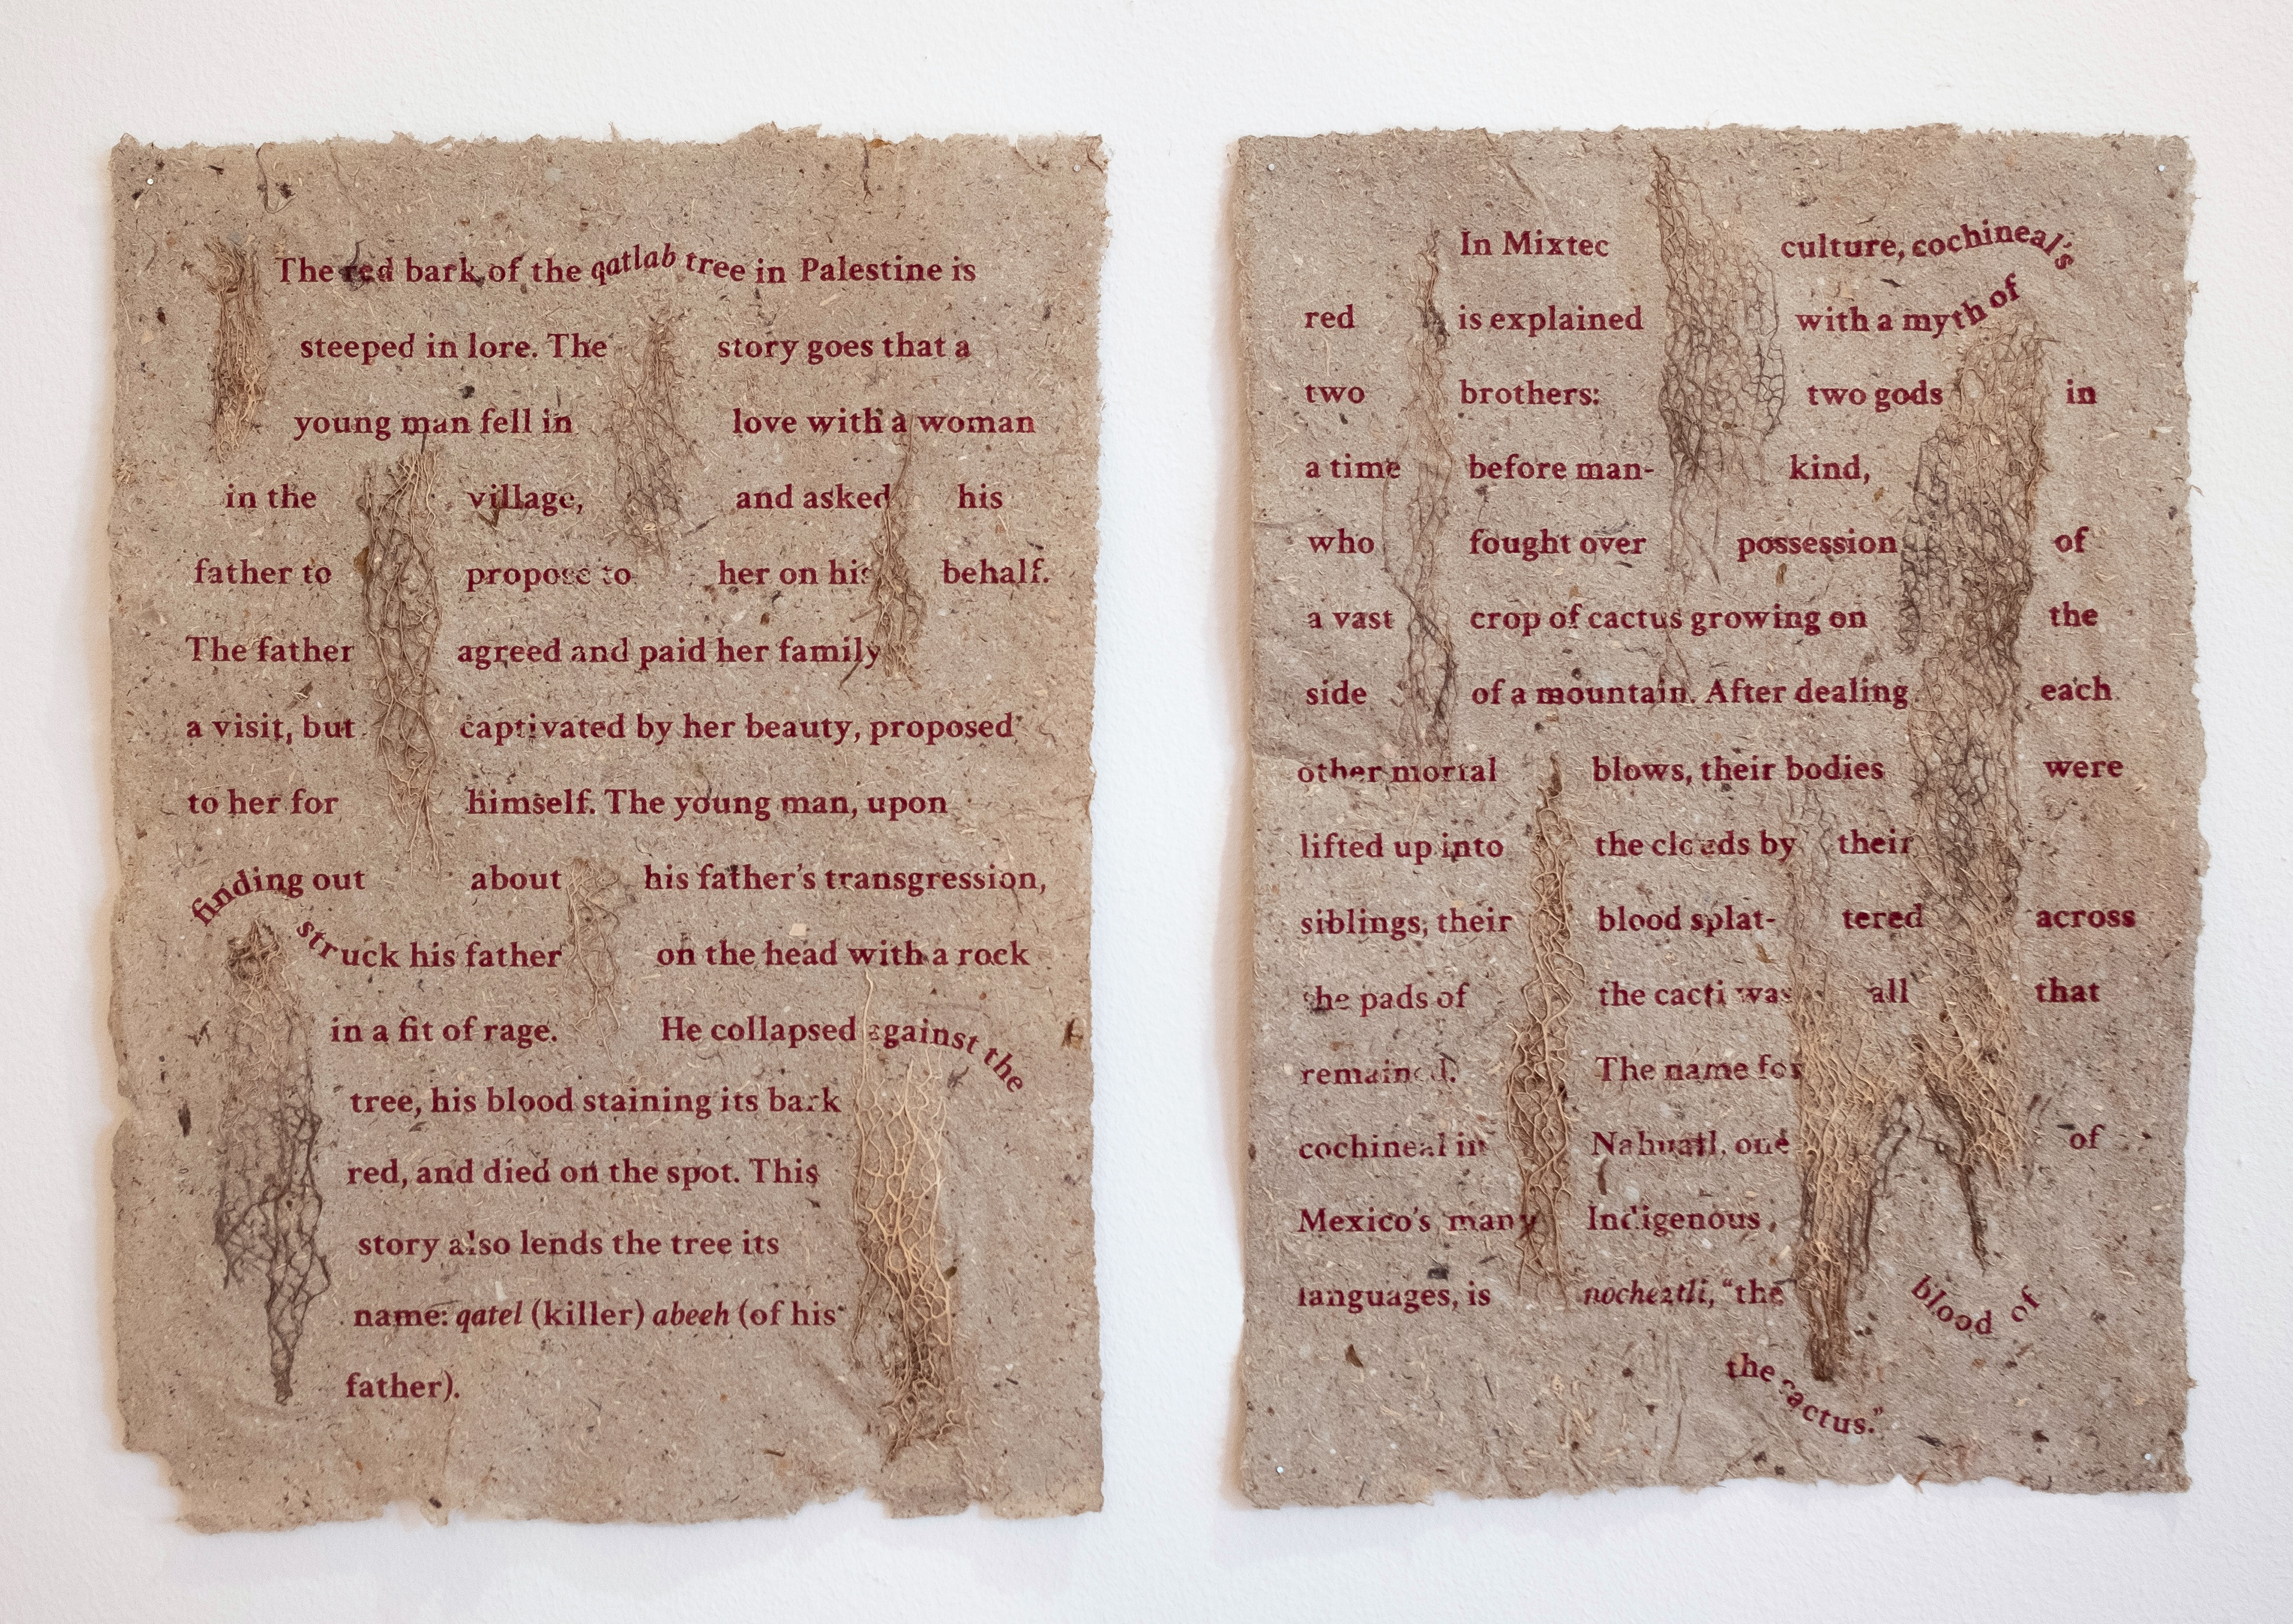 The red bark of the qatlab tree in Palestine is
steeped in lore. The story goes that a
young man fell in love with a woman
in the village, and asked his
father to propose to her on his behalf.
The father agreed and paid her family
a visit, but captivated by her beauty, proposed
to her for himself. The young man, upon
finding out about his father's transgression,
struck his father on the head with a rock
in a fit of rage. He collapsed against the
tree, his blood staining its bark
red, and died on the spot. This
story also lends the tree its
name: qatel (killer) abeeh (of his
father).
In Mixtec culture, cochineal's
red is explained with a myth of
two brothers: two gods in
a time before man-kind,
who fought over possession of
a vast crop of cactus growing on the
side of a mountain. After dealing each
other mortal blows, their bodies were
lifted up into the clouds by their
siblings, their blood splat-tered across
the pads of the cacti was all that
remained. The name for
cochineal in Nahuatl, one of
Mexico's many Indigenous
languages, is nocheztli, “the blood of
the cactus.”